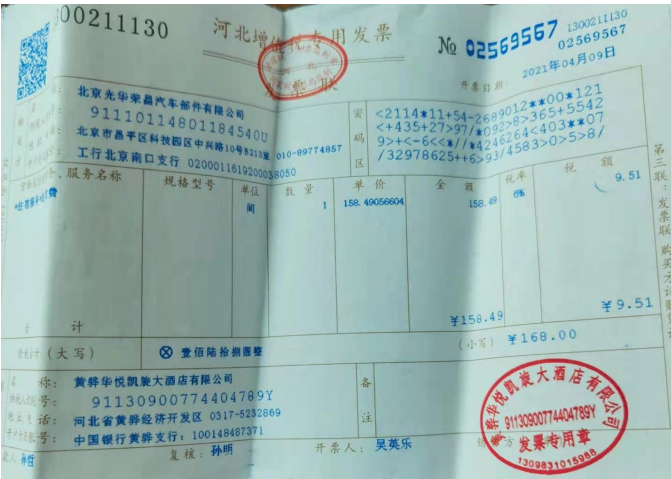 1300211130
河北增值税专用发票
发票联
№ 02569567
1300211130
02569567
开票日期
2021年04月09日
名
北京光华荣昌汽车部件有限公司
91110114801184540U
北京市昌平区科技园区中兴路10号B213室 010-89774857
工行北京南口支行 0200011619200038050
密码区
<2114*11+54-2689012**00*121
<+435+27>97/*092>8>365+5542
9>+<-6<<*//*4246264<403**07
/32978625++6>93/4583>0>5>8/
服务名称
规格型号
单位
数量
单价
金额
税率
税额
间
1
158.49056604
158.49
6%
9.51
合计
¥158.49
¥9.51
(大写)
ⓧ 壹佰陆拾捌圆整
(小写)
¥168.00
名称:
黄骅华悦凯旋大酒店有限公司
91130900774404789Y
河北省黄骅经济开发区 0317-5232869
中国银行黄骅支行:100148487371
备注
复核:
孙明
开票人:
吴英乐
第三联:发票联
黄骅华悦凯旋大酒店有限公司
91130900774404789Y
发票专用章
1309831015988